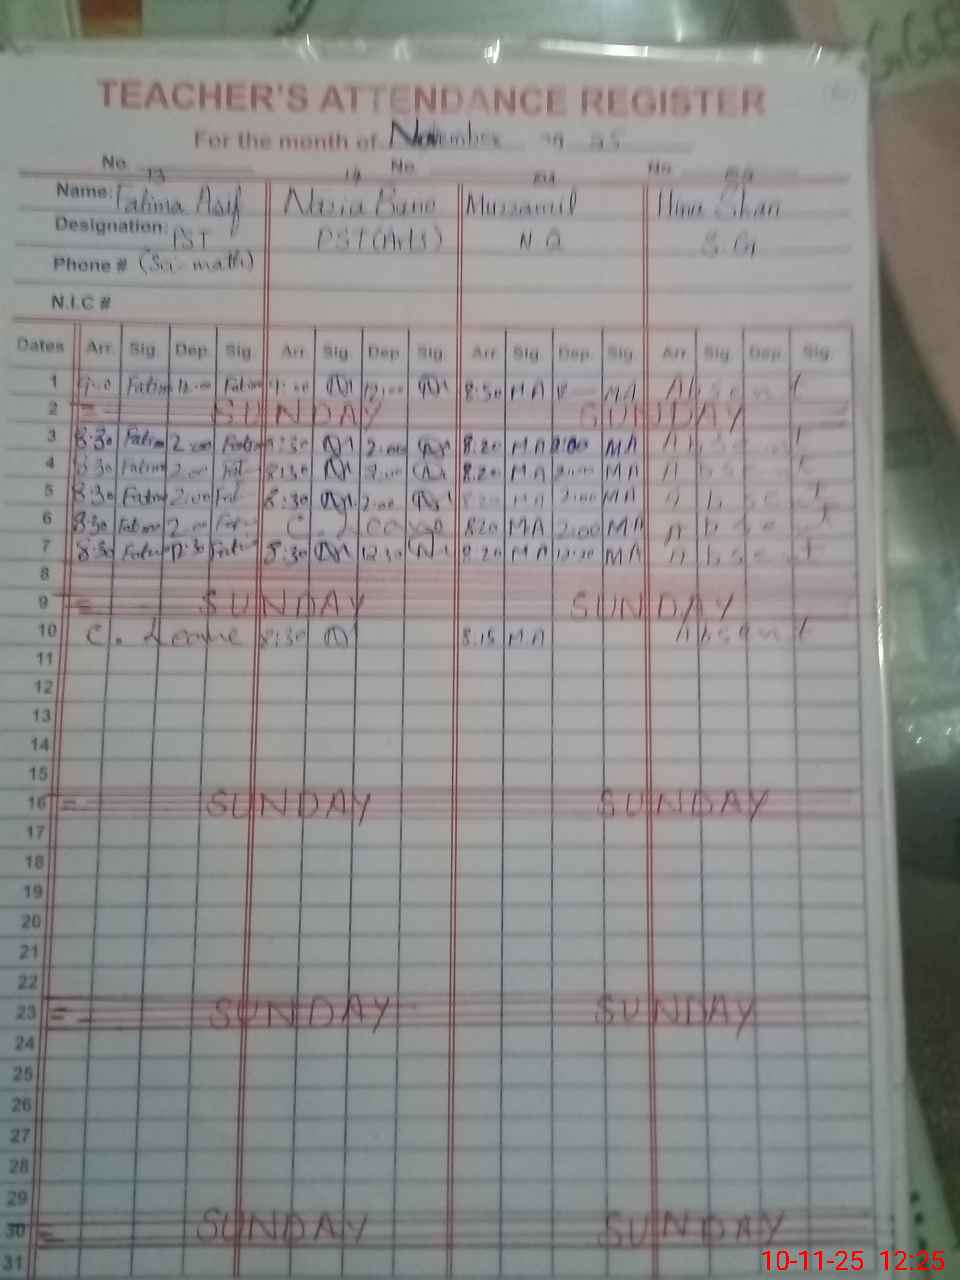 TEACHER'S ATTENDANCE REGISTER
For the month of November 25
No. 13 14 No. No.
Name: Fatima Asif Nazia Bano Muzzamil Hina Khan
Designation: PST PST (Arts) N.Q S.G
Phone # (Sci-math)
N.I.C #
Dates Arr. Sig. Dep. Sig. Arr. Sig. Dep. Sig. Arr. Sig. Dep. Sig. Arr. Sig. Dep. Sig.
1 Fatim 12:00 Fatim 12:00 8:30 MA MA Absent
2 SUNDAY SUNDAY
3 8:30 Fatim 2:00 Fatim 8:30 2:00 8:20 MA 2:00 MA Absent
4 8:30 Fatim 2:00 Fat 8:30 2:00 8:20 MA 2:00 MA Absent
5 8:30 Fatim 2:00 Fat 8:30 2:00 8:20 MA 2:00 MA Absent
6 8:30 Fatim 2:00 Fat 8:20 MA 2:00 MA Absent
7 8:30 Fatim 12:30 Fatim 8:30 12:30 8:20 MA 12:30 MA Absent
8
9 SUNDAY SUNDAY
10 C. Leave 8:30 8:15 MA Absent
11
12
13
14
15
16 SUNDAY SUNDAY
17
18
19
20
21
22
23 SUNDAY SUNDAY
24
25
26
27
28
29
30 SUNDAY SUNDAY
31
10-11-25 12:25